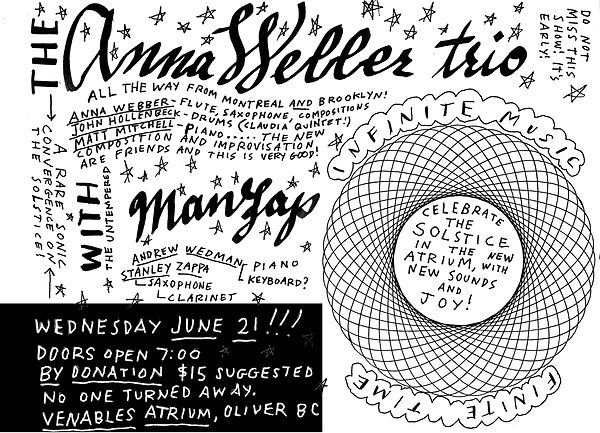 THE
Anna Webber trio
DO NOT
MISS THIS
SHOW! IT'S
EARLY!
ALL THE WAY FROM MONTREAL AND BROOKLYN!
ANNA WEBBER-FLUTE, SAXOPHONE, COMPOSITIONS
JOHN HOLLENBECK-DRUMS (CLAUDIA QUINTET!)
MATT MITCHELL-PIANO......THE NEW
COMPOSITION AND IMPROVISATION
ARE FRIENDS AND THIS IS VERY GOOD!
A RARE SONIC
CONVERGENCE ON
THE SOLSTICE!
WITH
THE UNTEMPERED
ManZap
ANDREW WEDMAN
PIANO
KEYBOARD?
STANLEY ZAPPA
SAXOPHONE
CLARINET
INFINITE MUSIC
CELEBRATE
THE
SOLSTICE
IN THE NEW
ATRIUM, WITH
NEW SOUNDS
AND
JOY!
FINITE TIME
WEDNESDAY JUNE 21!!!
DOORS OPEN 7:00
BY DONATION $15 SUGGESTED
NO ONE TURNED AWAY.
VENABLES ATRIUM, OLIVER BC